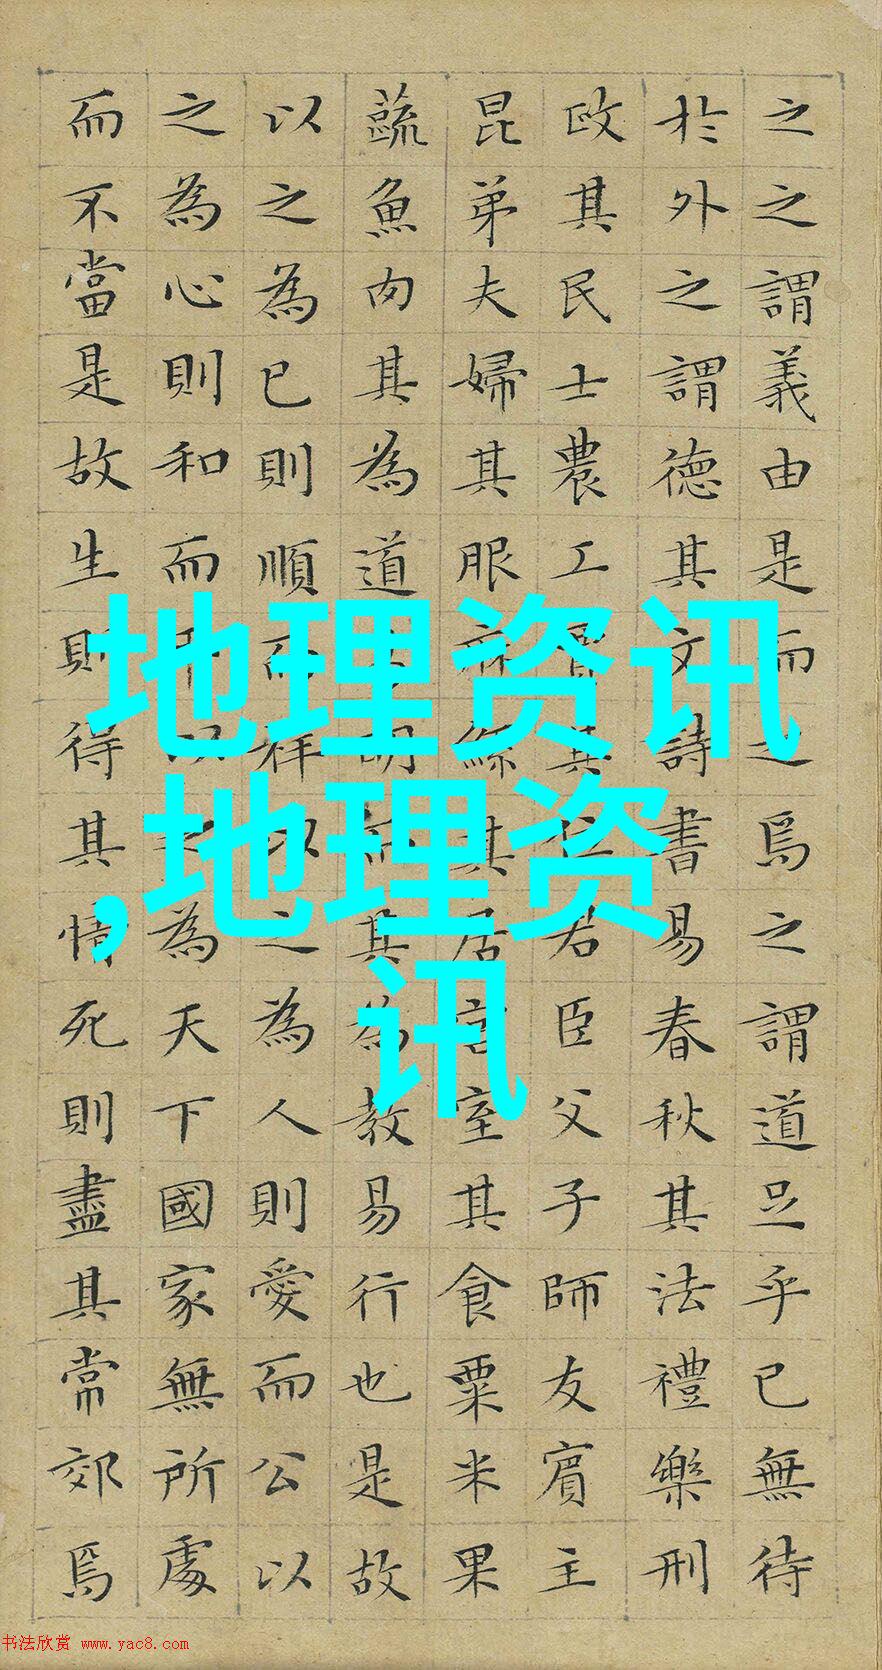 之之謂義由是而之焉之謂道足乎已無待
於外之謂德其文詩書易春秋其法禮樂刑
政其民士農工賈其位君臣父子師友賓主
昆弟夫婦其服麻絲其居宮室其食粟米果
蔬魚肉其為道明而其為教易行也是故
以之為已則順而祥以之為人則愛而公以
之為心則和而平以之為天下國家無所處
而不當是故生則得其情死則盡其常郊焉
地理资讯
,地理资
讯
书法欣赏 www.yac8.com